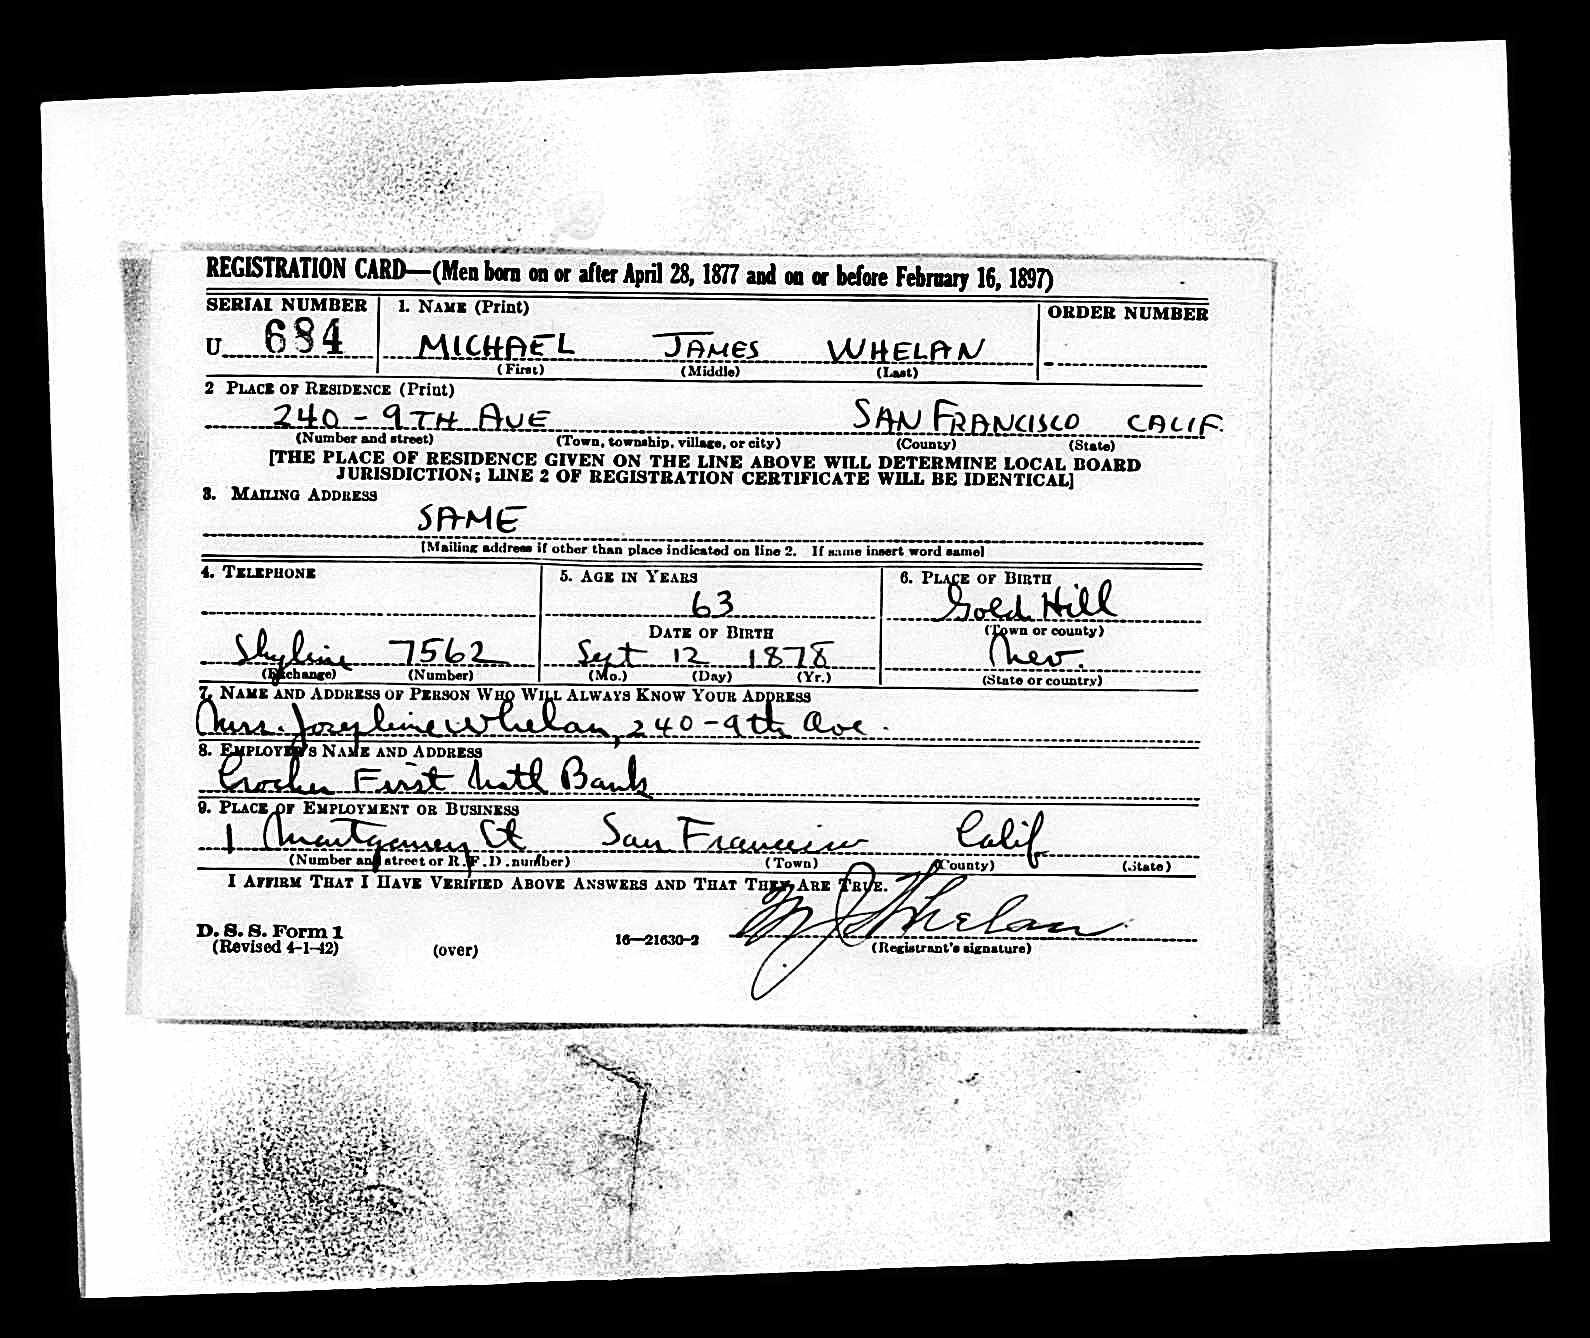 REGISTRATION CARD—(Men born on or after April 28, 1877 and on or before February 16, 1897)
SERIAL NUMBER 1. NAME (Print) ORDER NUMBER
U 684 MICHAEL JAMES WHELAN
(First) (Middle) (Last)
2 PLACE OF RESIDENCE (Print)
240 - 9TH AVE SAN FRANCISCO CALIF.
(Number and street) (Town, township, village, or city) (County) (State)
[THE PLACE OF RESIDENCE GIVEN ON THE LINE ABOVE WILL DETERMINE LOCAL BOARD
JURISDICTION; LINE 2 OF REGISTRATION CERTIFICATE WILL BE IDENTICAL]
3. MAILING ADDRESS
SAME
[Mailing address if other than place indicated on line 2. If same insert word same]
4. TELEPHONE 5. AGE IN YEARS 6. PLACE OF BIRTH
63 Gold Hill
DATE OF BIRTH (Town or county)
Skyline 7562 Sept 12 1878 Nev.
(Exchange) (Number) (Mo.) (Day) (Yr.) (State or country)
7. NAME AND ADDRESS OF PERSON WHO WILL ALWAYS KNOW YOUR ADDRESS
Mrs. Josephine Whelan, 240 - 9th Ave.
8. EMPLOYER'S NAME AND ADDRESS
Crocker First Natl Bank
9. PLACE OF EMPLOYMENT OR BUSINESS
1 Montgomery St San Francisco Calif
(Number and street or R. F. D. number) (Town) (County) (State)
I AFFIRM THAT I HAVE VERIFIED ABOVE ANSWERS AND THAT THEY ARE TRUE.
M J Whelan
D. S. S. Form 1
(Revised 4-1-42) (over) 16—21630-2 (Registrant's signature)